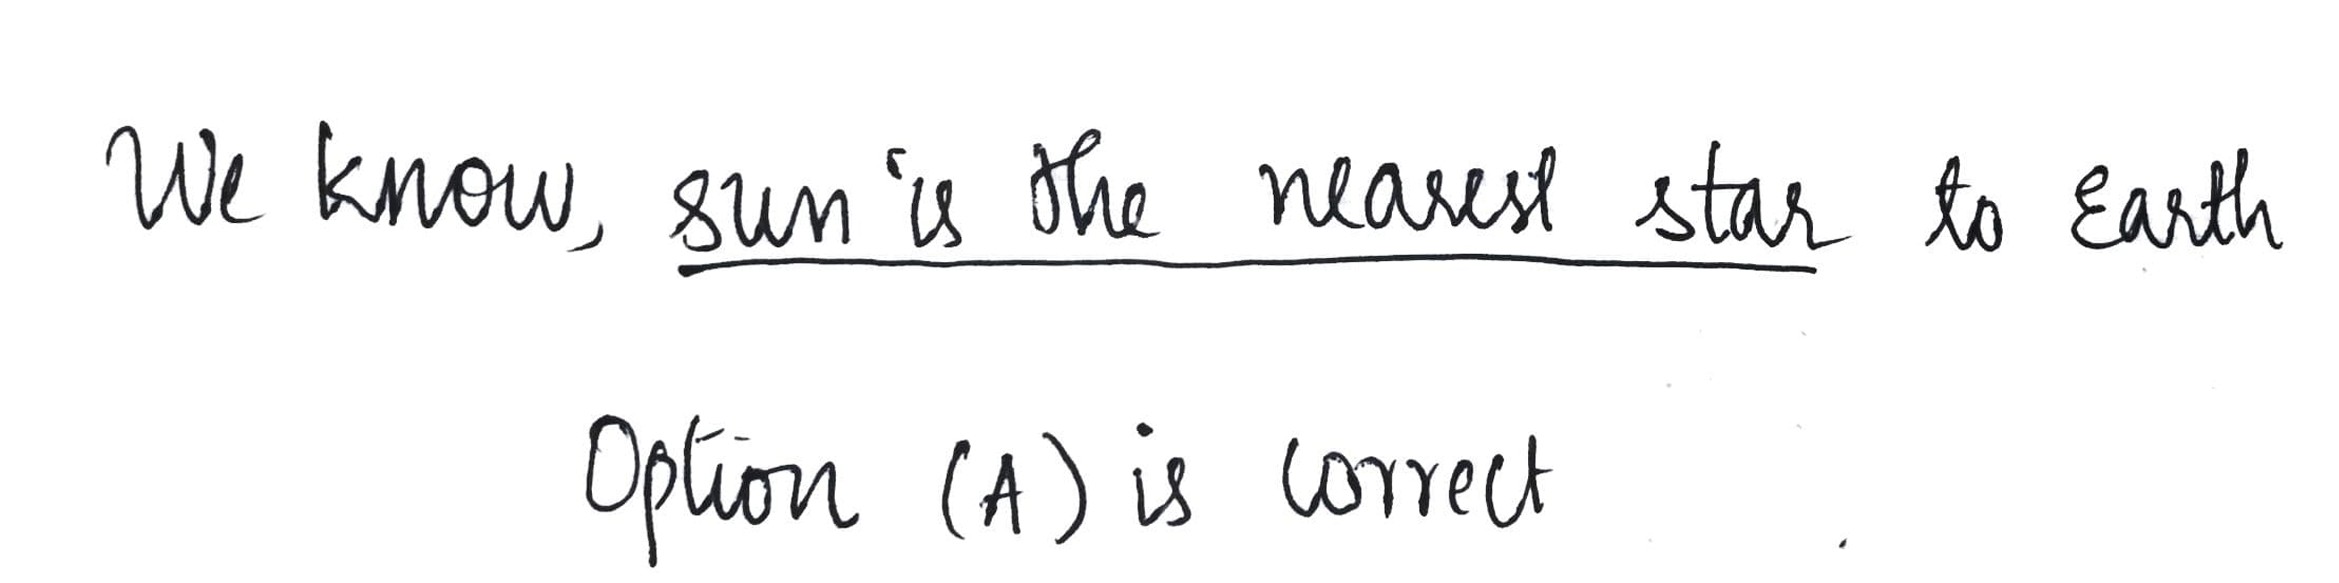 We know, sun is the nearest star to Earth
Option (A) is correct